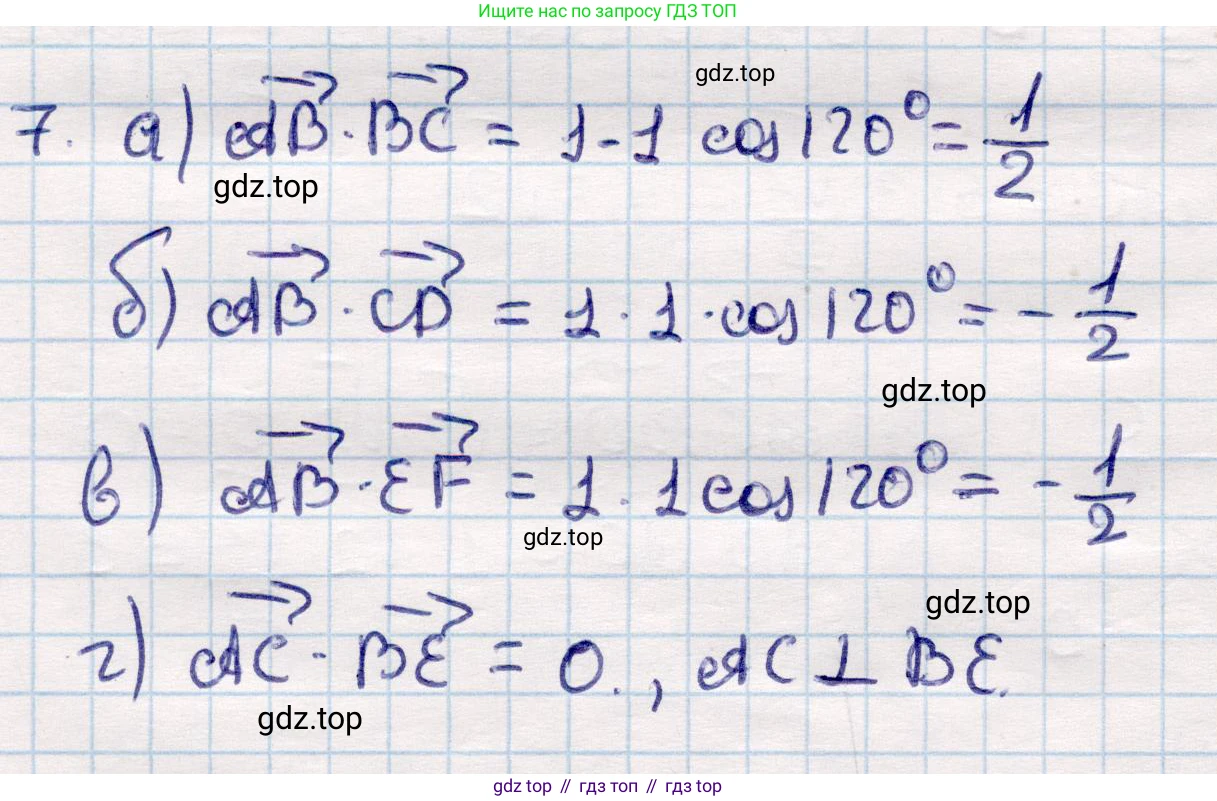 Ищите нас по запросу ГДЗ ТОП
gdz.top
7. а) AB · BC = 1 - 1 cos 120° = 1/2
gdz.top
б) AB · CD = 1 · 1 · cos 120° = - 1/2
gdz.top
в) AB · EF = 1 · 1 cos 120° = - 1/2
gdz.top
gdz.top
г) AC · BE = 0., AC ⊥ BE.
gdz.top
gdz top // гдз топ // гдз top